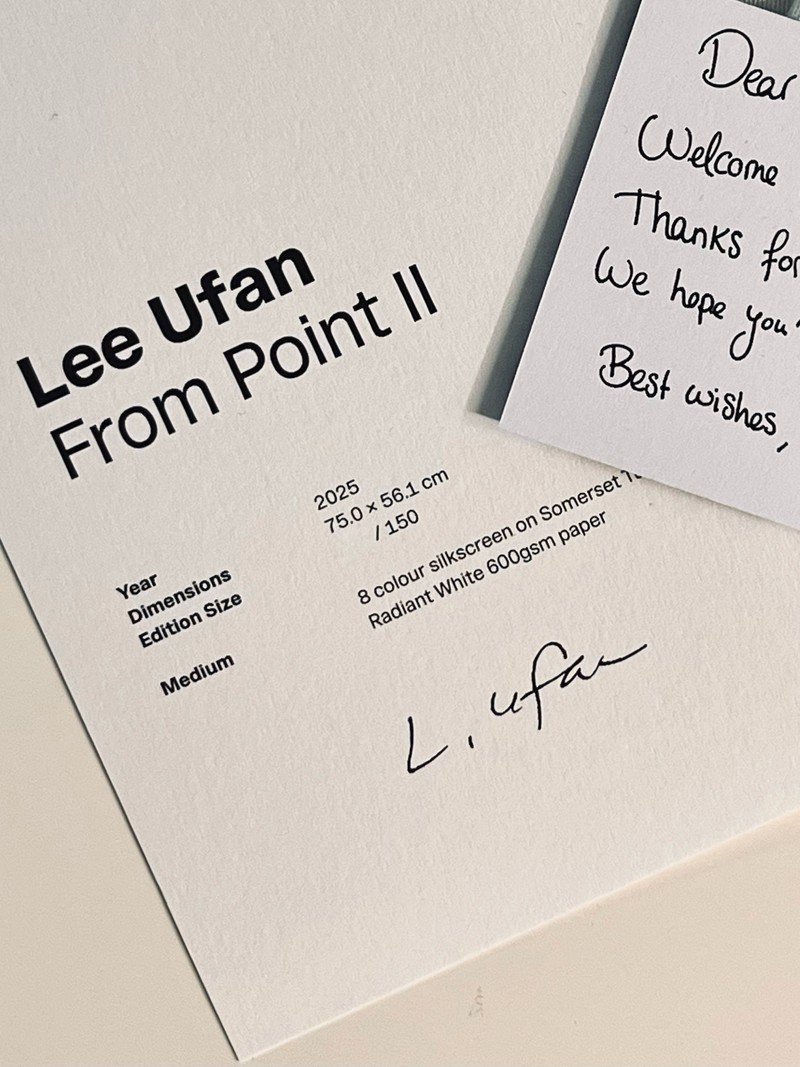 Lee Ufan
From Point II
Year 2025
Dimensions 75.0 × 56.1 cm
Edition Size / 150
Medium 8 colour silkscreen on Somerset
Radiant White 600gsm paper
L. Ufan
Dear
Welcome
Thanks for
We hope you
Best wishes,